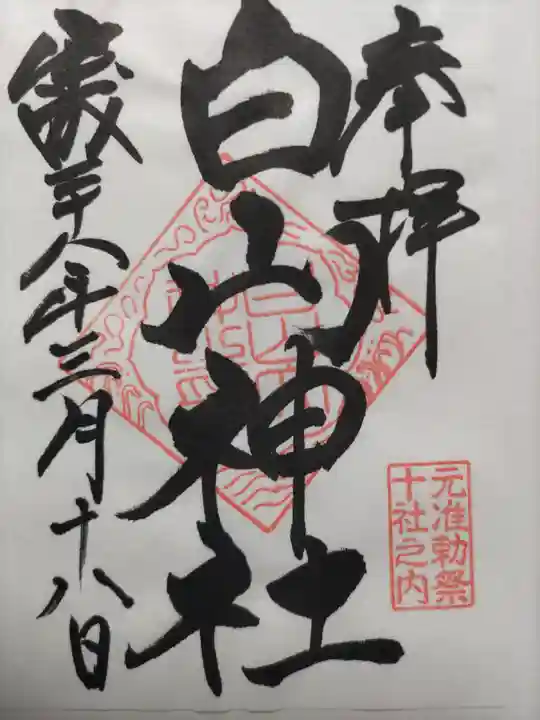 奉拝
元准勅祭
十社之内
白山神社
二十八年三月十八日